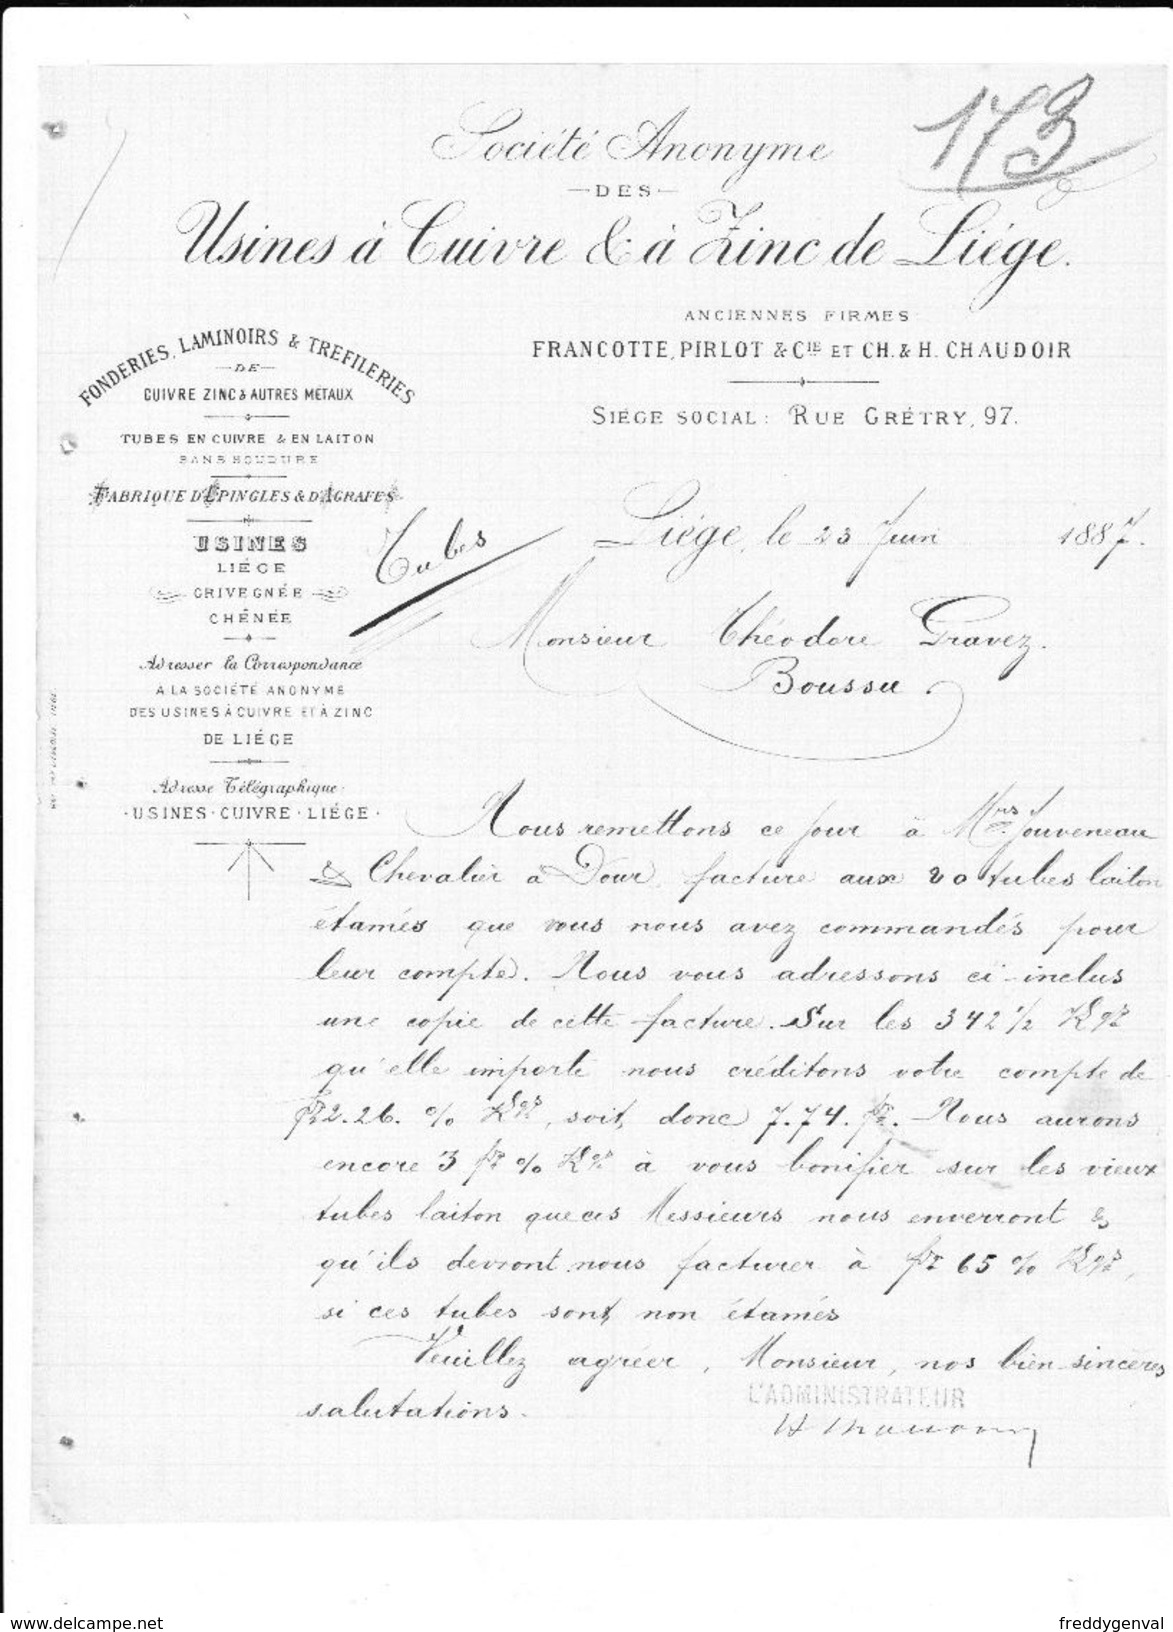 173
Société Anonyme
— DES —
Usines à Cuivre & à Zinc de Liége.
ANCIENNES FIRMES
FRANCOTTE, PIRLOT & CIE ET CH. & H. CHAUDOIR
SIÉGE SOCIAL: RUE GRÉTRY, 97.
FONDERIES, LAMINOIRS & TRÉFILERIES
— DE —
CUIVRE ZINC & AUTRES MÉTAUX
TUBES EN CUIVRE & EN LAITON
SANS SOUDURE
FABRIQUE D'ÉPINGLES & D'AGRAFES
USINES
LIÉGE
GRIVEGNÉE
CHÊNÉE
Adresser la Correspondance
A LA SOCIÉTÉ ANONYME
DES USINES À CUIVRE ET À ZINC
DE LIÉGE
Adresse Télégraphique:
·USINES·CUIVRE·LIÉGE·
Tubes
Liége, le 23 Juin 1887.
Monsieur Théodore Gravez.
Boussu.
Nous remettons ce jour à Mrs Jouveneau
& Chevalier à Dour, facture aux 20 tubes laiton
étamés que vous nous avez commandés pour
leur compte. Nous vous adressons ci-inclus
une copie de cette facture. Sur les 342 1/2 Kgs
qu'elle importe nous créditons votre compte de
frs 2.26. % Kgs, soit, donc 7.74. frs. Nous aurons
encore 3 frs % Kgs à vous bonifier sur les vieux
tubes laiton que ces Messieurs nous enverront &
qu'ils devront nous facturer à frs 65 % Kgs,
si ces tubes sont non étamés
Veuillez agréer, Monsieur, nos bien sincères
salutations.
L'ADMINISTRATEUR
delcampe.net
freddygenval